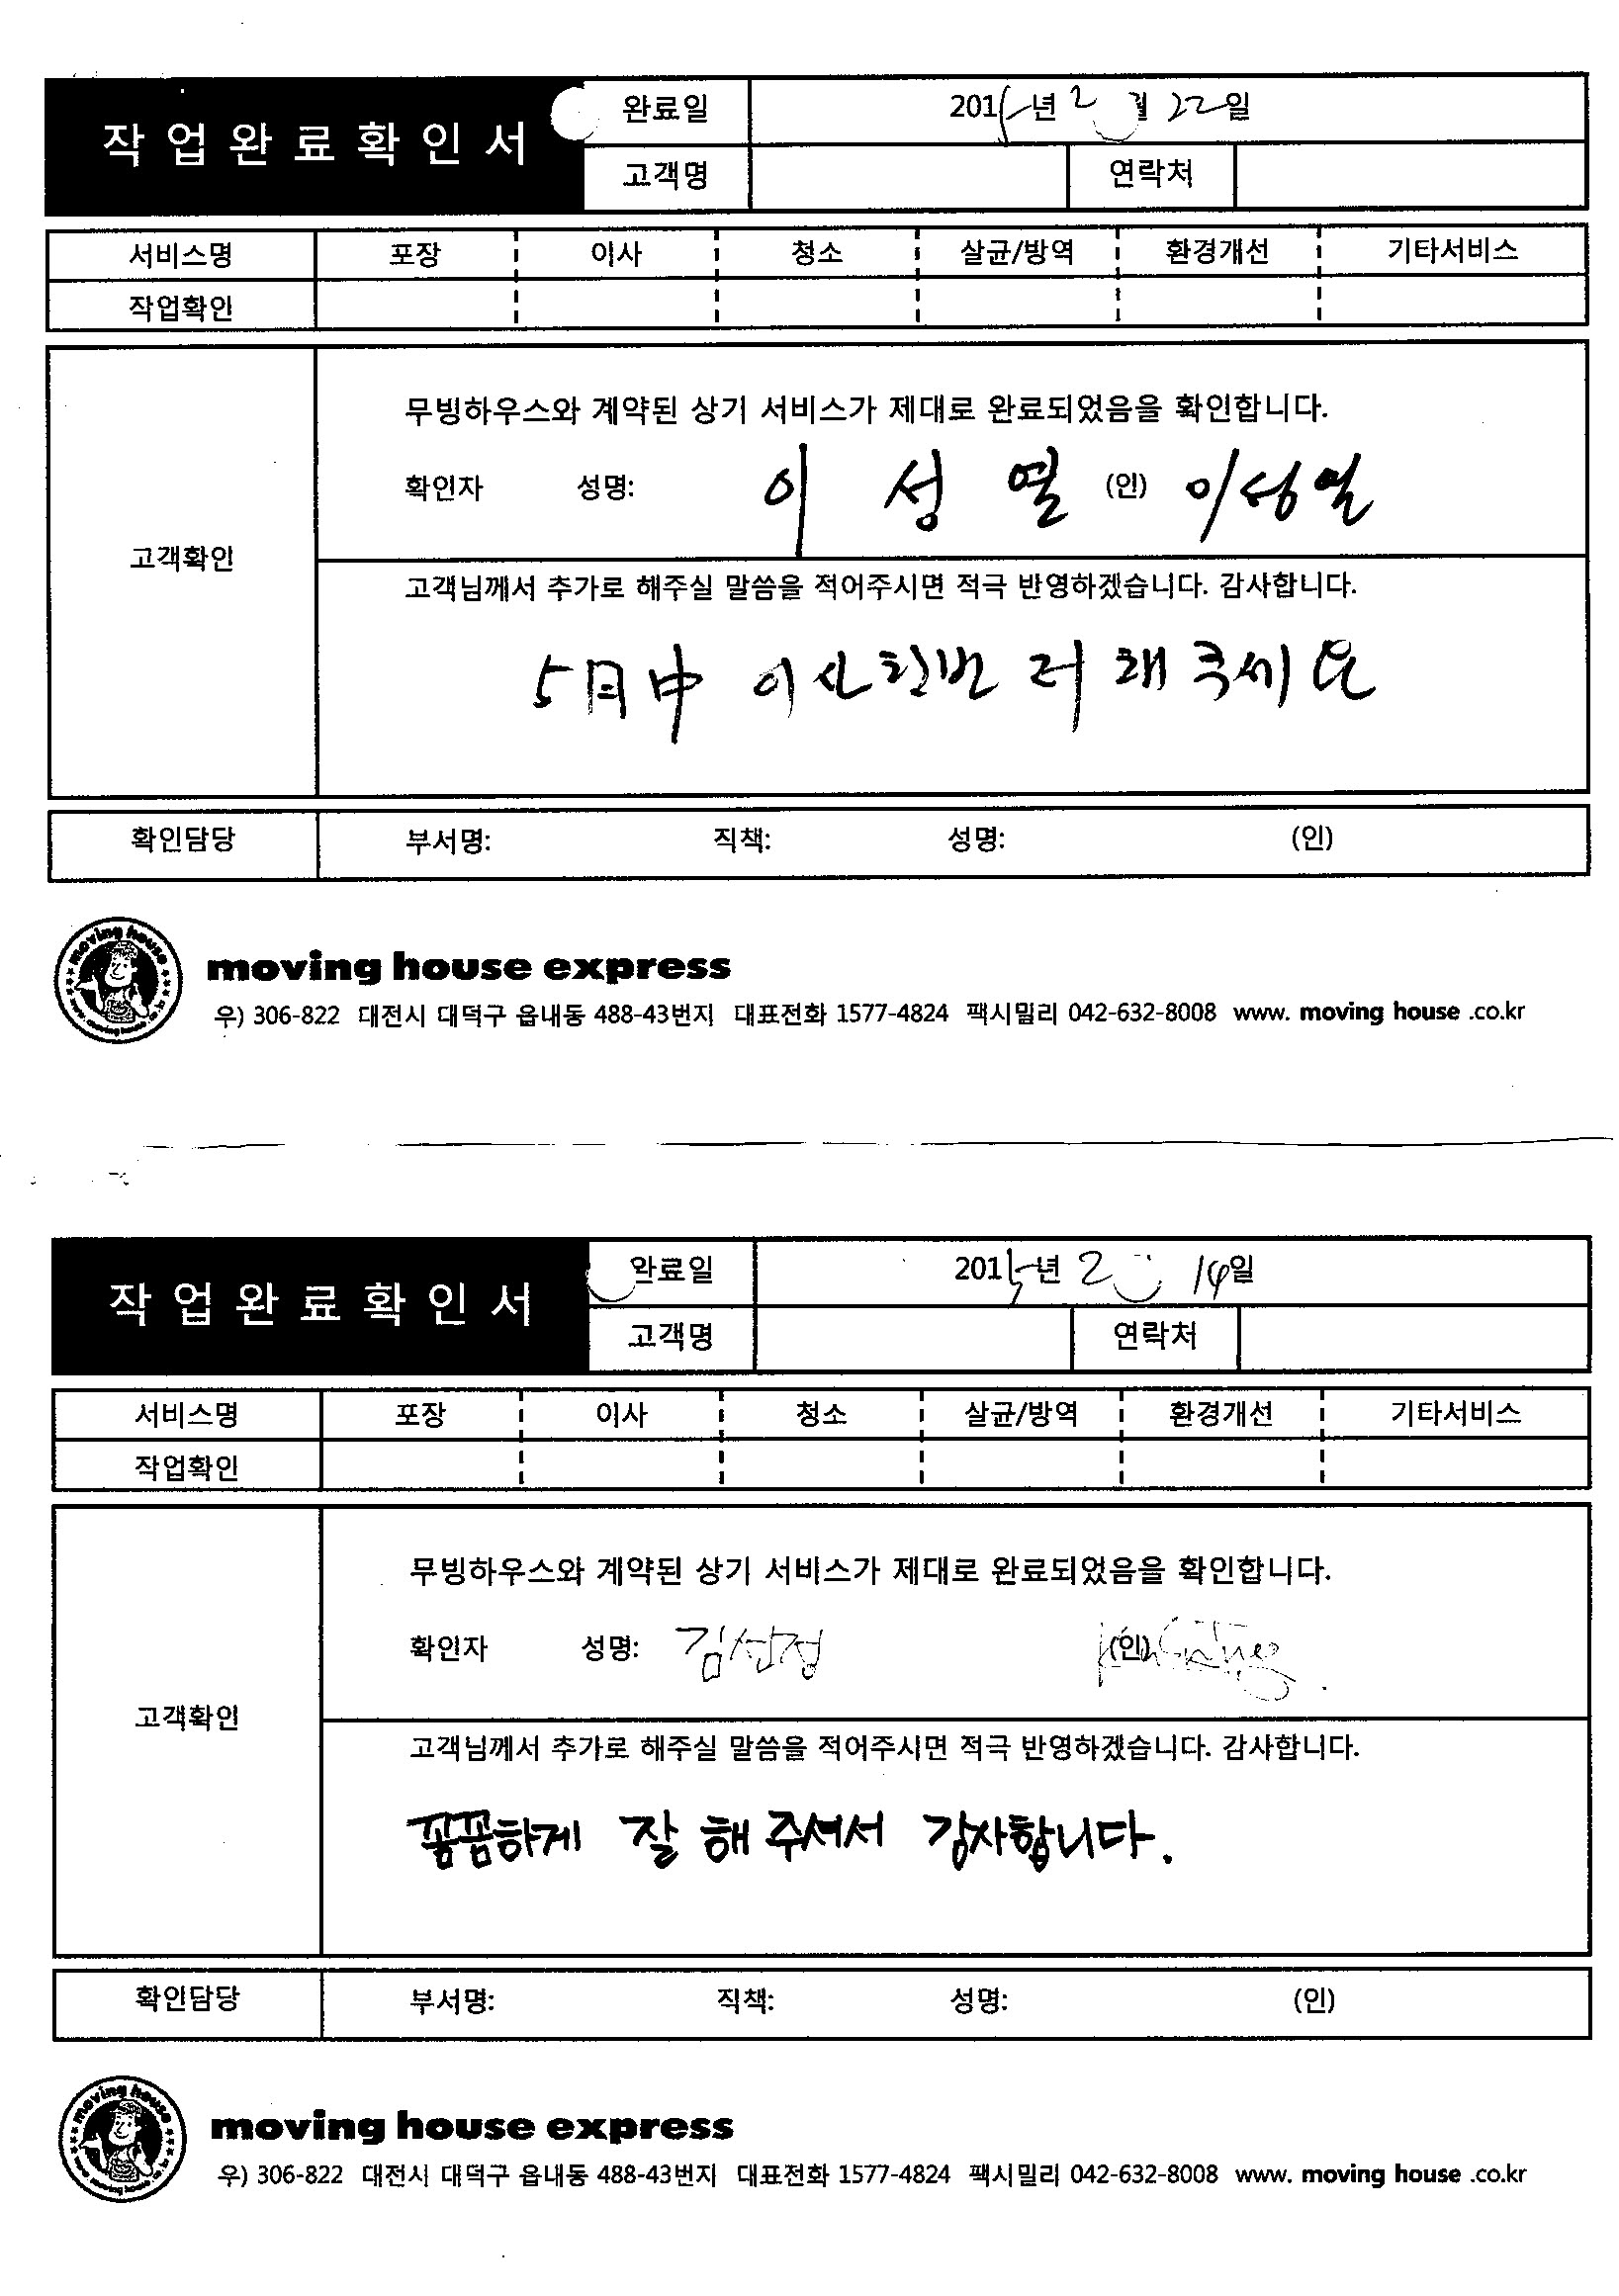 작업완료확인서
완료일 2015년 2월 22일
고객명 연락처
서비스명 포장 이사 청소 살균/방역 환경개선 기타서비스
작업확인
고객확인
무빙하우스와 계약된 상기 서비스가 제대로 완료되었음을 확인합니다.
확인자 성명: 이 성 열 (인) 이성열
고객님께서 추가로 해주실 말씀을 적어주시면 적극 반영하겠습니다. 감사합니다.
5月中 이사 한번 더 해 주세요
확인담당 부서명: 직책: 성명: (인)
moving house
moving house express
우) 306-822 대전시 대덕구 읍내동 488-43번지 대표전화 1577-4824 팩시밀리 042-632-8008 www. moving house .co.kr
작업완료확인서
완료일 2015년 2 14일
고객명 연락처
서비스명 포장 이사 청소 살균/방역 환경개선 기타서비스
작업확인
고객확인
무빙하우스와 계약된 상기 서비스가 제대로 완료되었음을 확인합니다.
확인자 성명: 김선정 (인)
고객님께서 추가로 해주실 말씀을 적어주시면 적극 반영하겠습니다. 감사합니다.
꼼꼼하게 잘 해 주셔서 감사합니다.
확인담당 부서명: 직책: 성명: (인)
moving house
moving house express
우) 306-822 대전시 대덕구 읍내동 488-43번지 대표전화 1577-4824 팩시밀리 042-632-8008 www. moving house .co.kr